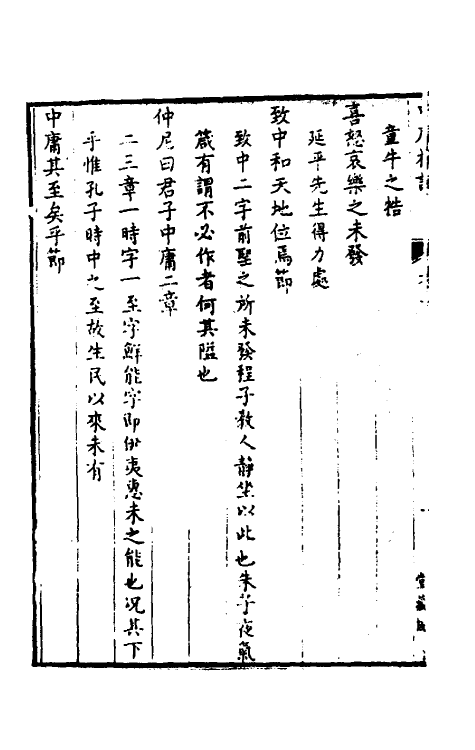 童牛之牿
喜怒哀樂之未發
延平先生得力處
致中和天地位焉節
致中二字前聖之所未發程子教人靜坐以此也朱子夜氣
箴有謂不必作者何其隘也
仲尼曰君子中庸二章
二三章一時字一至字鮮能字即伊夷惠未之能也況其下
乎惟孔子時中之至故生民以來未有
中庸其至矣乎節